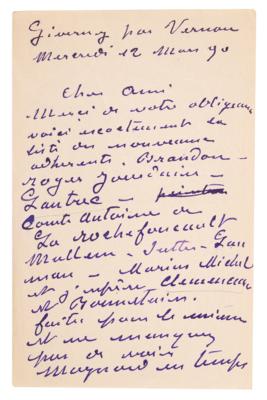 Giverny par Vernon
Mercredi 12 Mars 90
Cher Ami
Merci de votre obligeance
voici exactement la
liste des nouveaux
adhérents. Brandon –
Roger Jourdain –
Lautrec –
Comte Antoine de
La Rochefoucault
Mallem – Sutter-Lau
man – Marius Michel
et j'espère Clemenceau
et
faites pour le mieux
et ne manquez
pas de voir
Maynard en temps